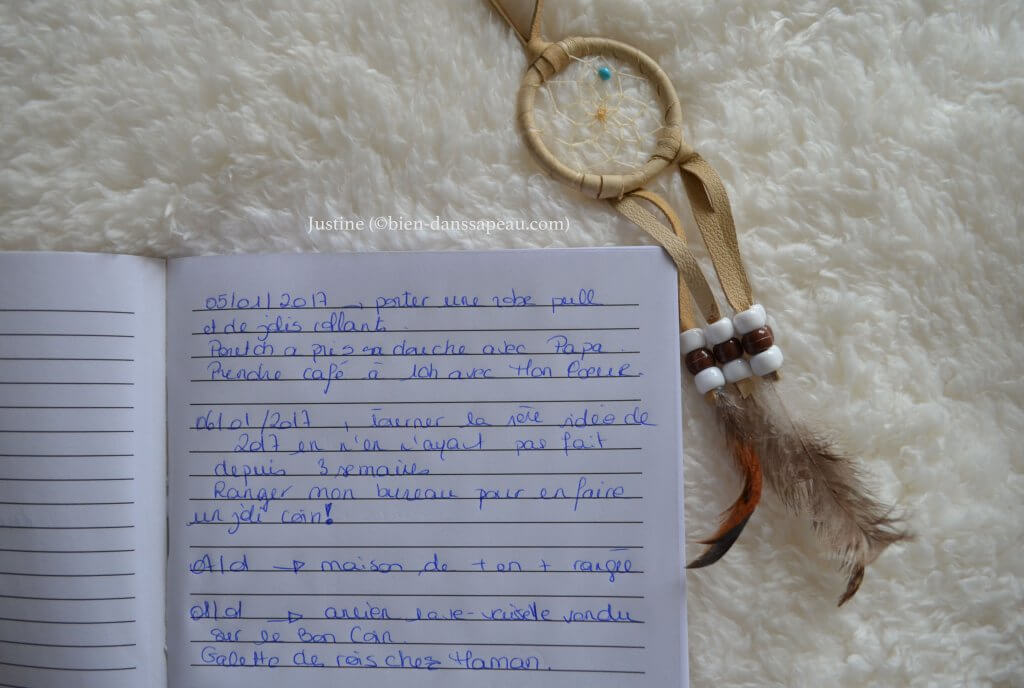 Justine (©bien-danssapeau.com)
05/01/2017 → porter une robe pull
et de jolis collants.
a pris sa douche avec Papa.
Prendre café à 10h avec Mon Coeur.
06/01/2017 → Tourner la 1ère vidéo de
2017 en n'en n'ayant pas fait
depuis 3 semaines
Ranger mon bureau pour en faire
un joli coin!
→ maison de + en + rangée
→ ancien lave-vaisselle vendu
sur le Bon Coin.
Galette de rois chez Maman.